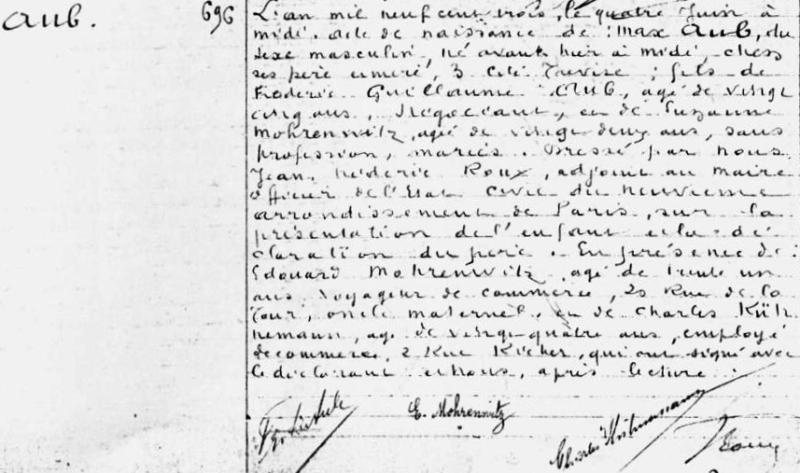 Aub.
696
L'an mil neuf cent trois, le quatre Juin à
midi. acte de naissance de : Max Aub, du
sexe masculin, né avant hier à midi, chez
ses père et mère, 3 Cité Trévise ; fils de
Fréderic Guillaume Aub, agé de vingt
cinq ans, Négociant, et de Suzanne
Mohrenwitz, agé de vingt deux ans, sans
profession, mariés. Dressé par nous
Jean Fréderic Roux, adjoint au maire
officier de l'Etat Civil du neuvième
arrondissement de Paris, sur la
présentation de l'enfant et la dé
claration du père. En présence de :
Edouard Mohrenwitz agé de trente un
ans, Voyageur de commerce, 20 Rue de la
Tour, oncle maternel, et de Charles Küh
nemann, agé de vingt quatre ans, employé
de commerce, 2 Rue Richer, qui ont signé avec
le déclarant et nous, après lecture :
E. Mohrenwitz
Charles Kühnemann
Roux